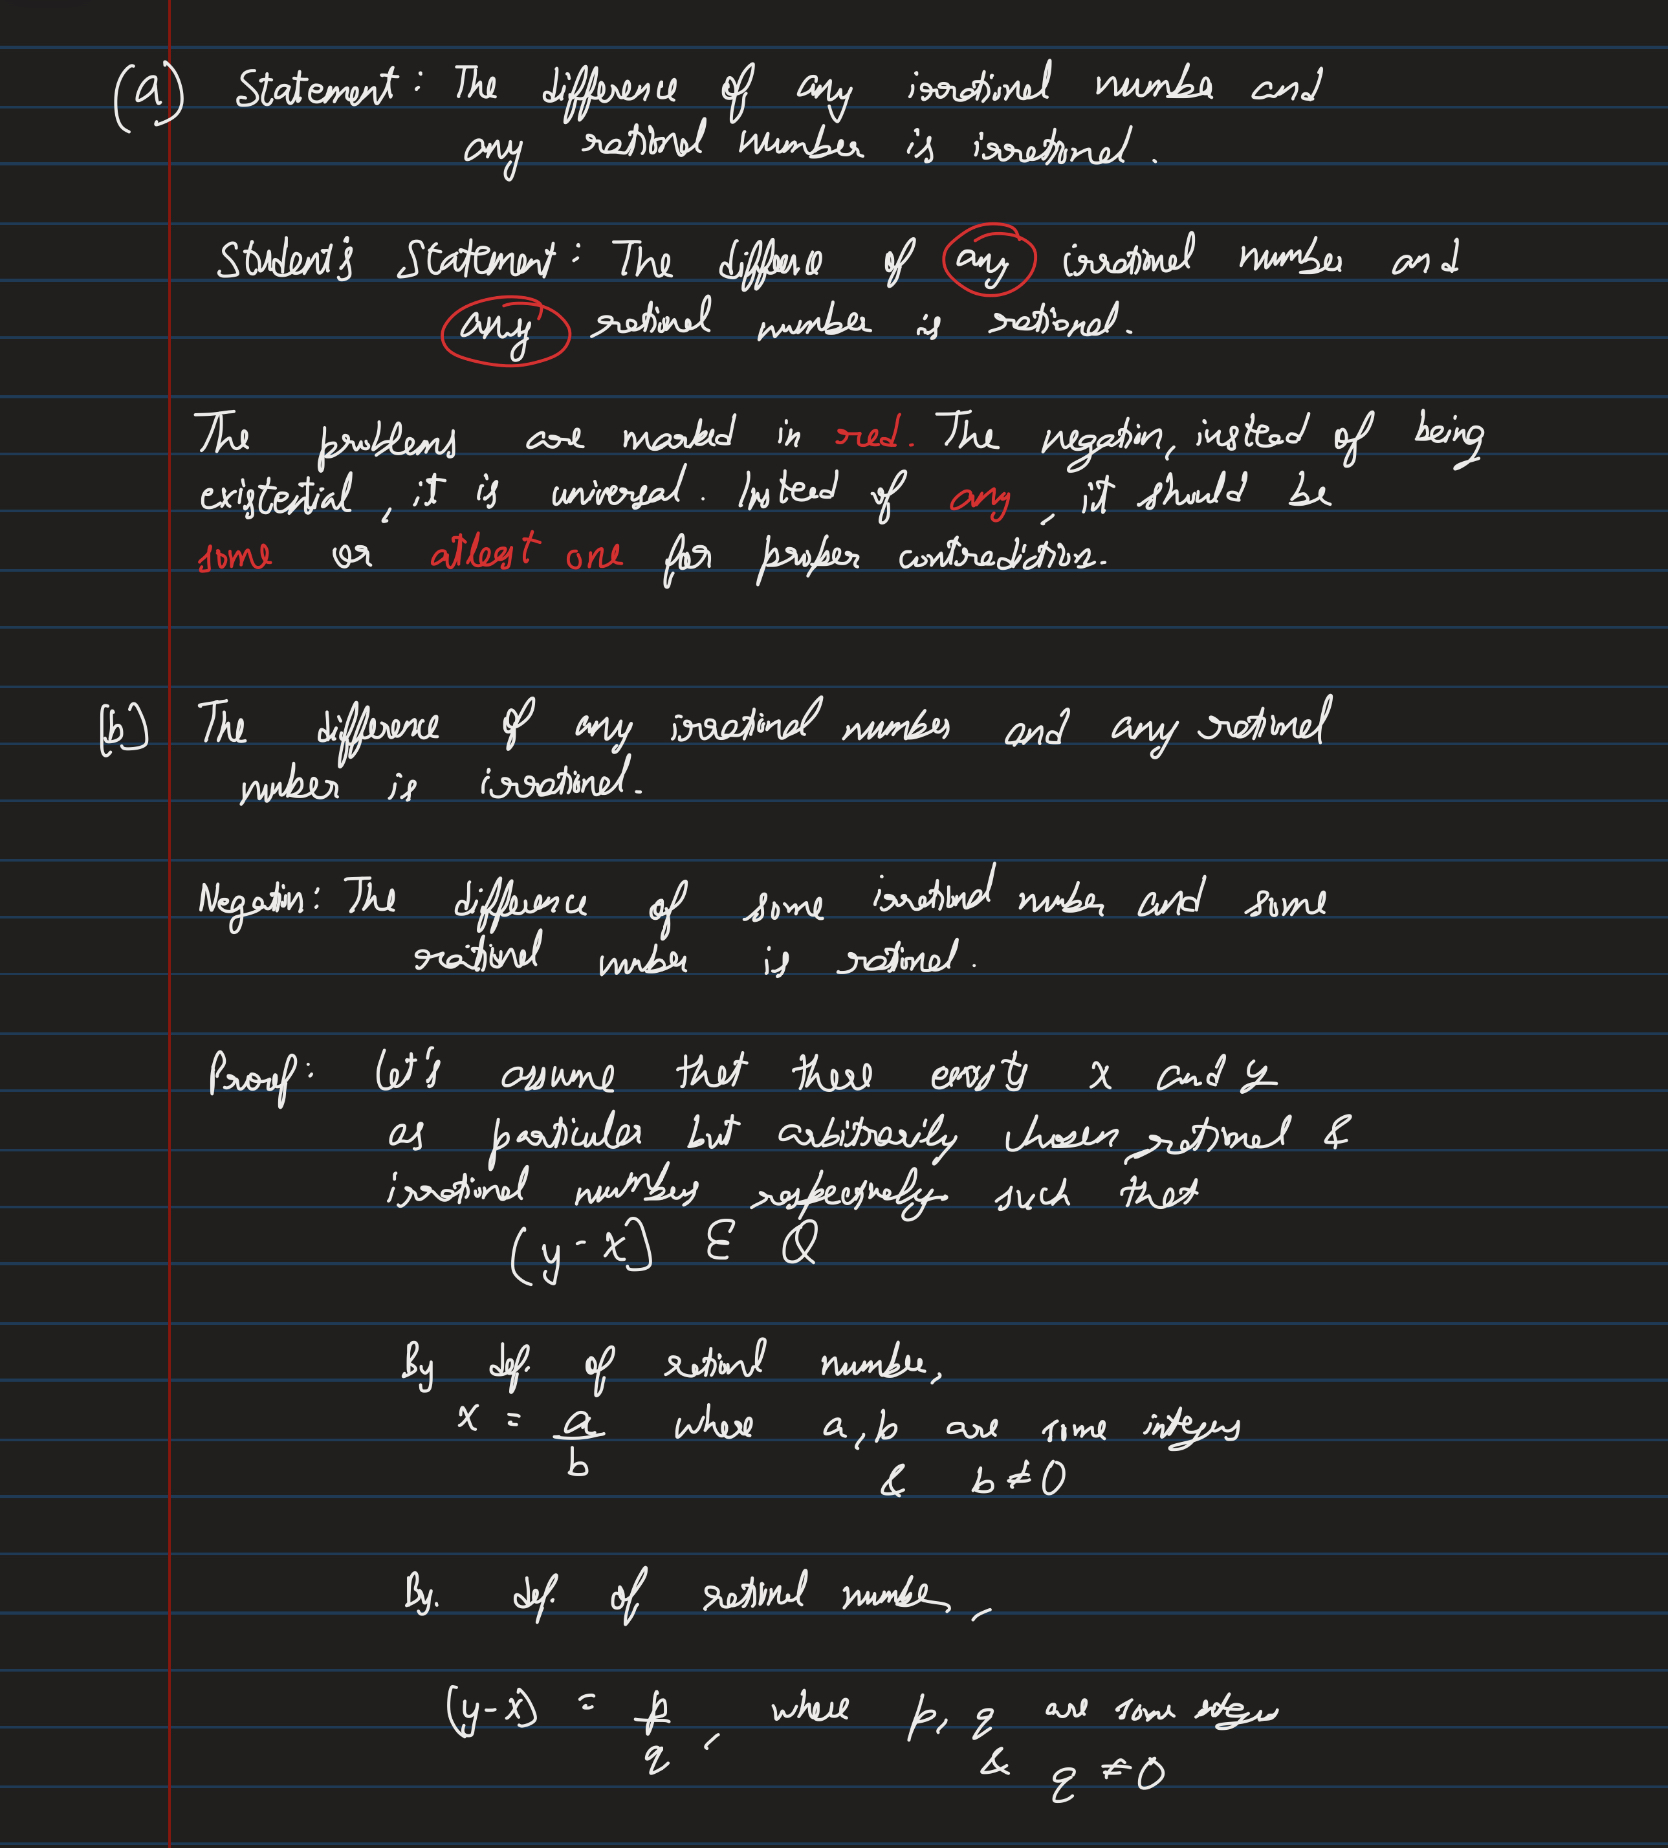 (a) Statement: The difference of any irrational number and
any rational number is irrational.
Student's Statement: The difference of any irrational number and
any rational number is rational.
The problems are marked in red. The negation, instead of being
existential, it is universal. Instead of any, it should be
some or atleast one for proper contradiction.
(b) The difference of any irrational number and any rational
number is irrational.
Negation: The difference of some irrational number and some
rational number is rational.
Proof: Let's assume that there exists x and y
as particular but arbitrarily chosen rational &
irrational numbers respectively such that
(y - x) ∈ Q
By def. of rational number,
x = a/b where a, b are some integers
& b ≠ 0
By. def. of rational number,
(y-x) = p/q, where p, q are some integers
& q ≠ 0